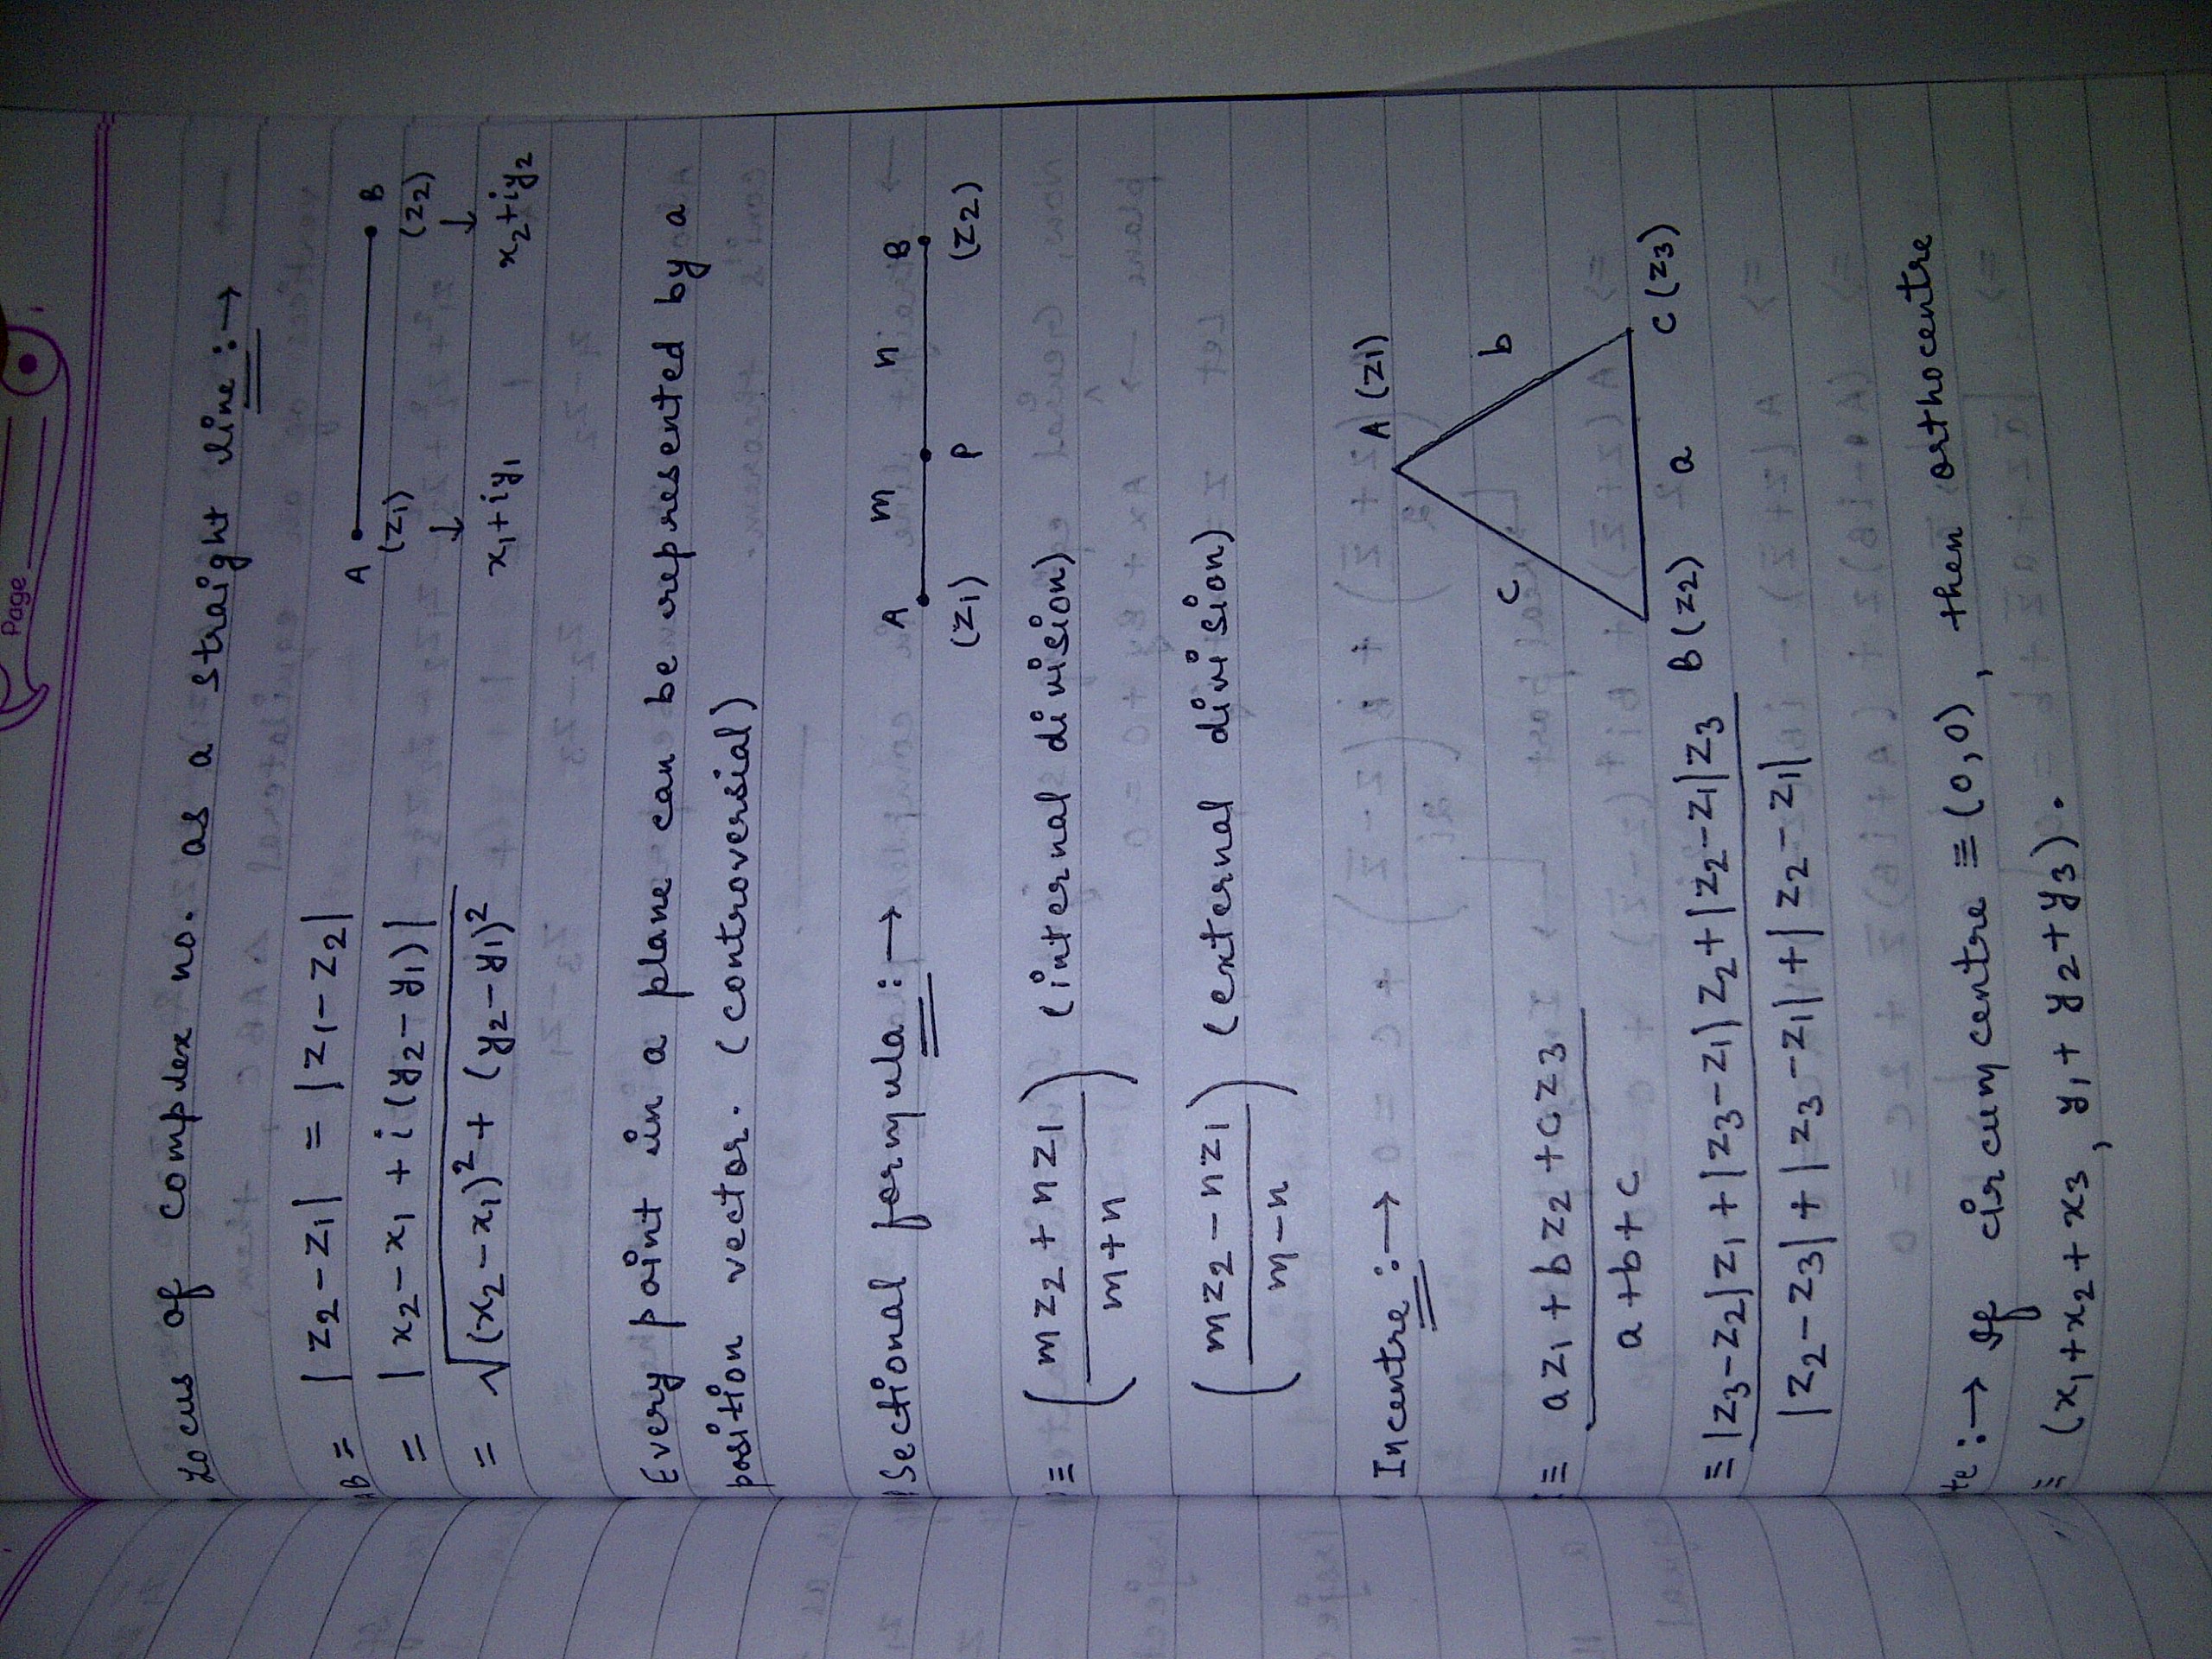 Page
Locus of complex no. as a straight line :→
AB = |z₂-z₁| = |z₁-z₂|
= |x₂-x₁ + i(y₂-y₁)|
= √(x₂-x₁)² + (y₂-y₁)²
A B
(z₁) (z₂)
↓ ↓
x₁+iy₁ x₂+iy₂
Every point in a plane can be represented by a
position vector. (controversial)
Sectional formula :→
A m n B
(z₁) P (z₂)
≡ (mz₂ + nz₁ / m+n) (internal division)
(mz₂ - nz₁ / m-n) (external division)
Incentre :→
A (z₁)
c b
B(z₂) a C(z₃)
≡ az₁ + bz₂ + cz₃ / a+b+c
≡ |z₃-z₂|z₁ + |z₃-z₁|z₂ + |z₂-z₁|z₃ / |z₂-z₃| + |z₃-z₁| + |z₂-z₁|
te :→ If circumcentre ≡ (0,0), then orthocentre
≡ (x₁+x₂+x₃, y₁+y₂+y₃).